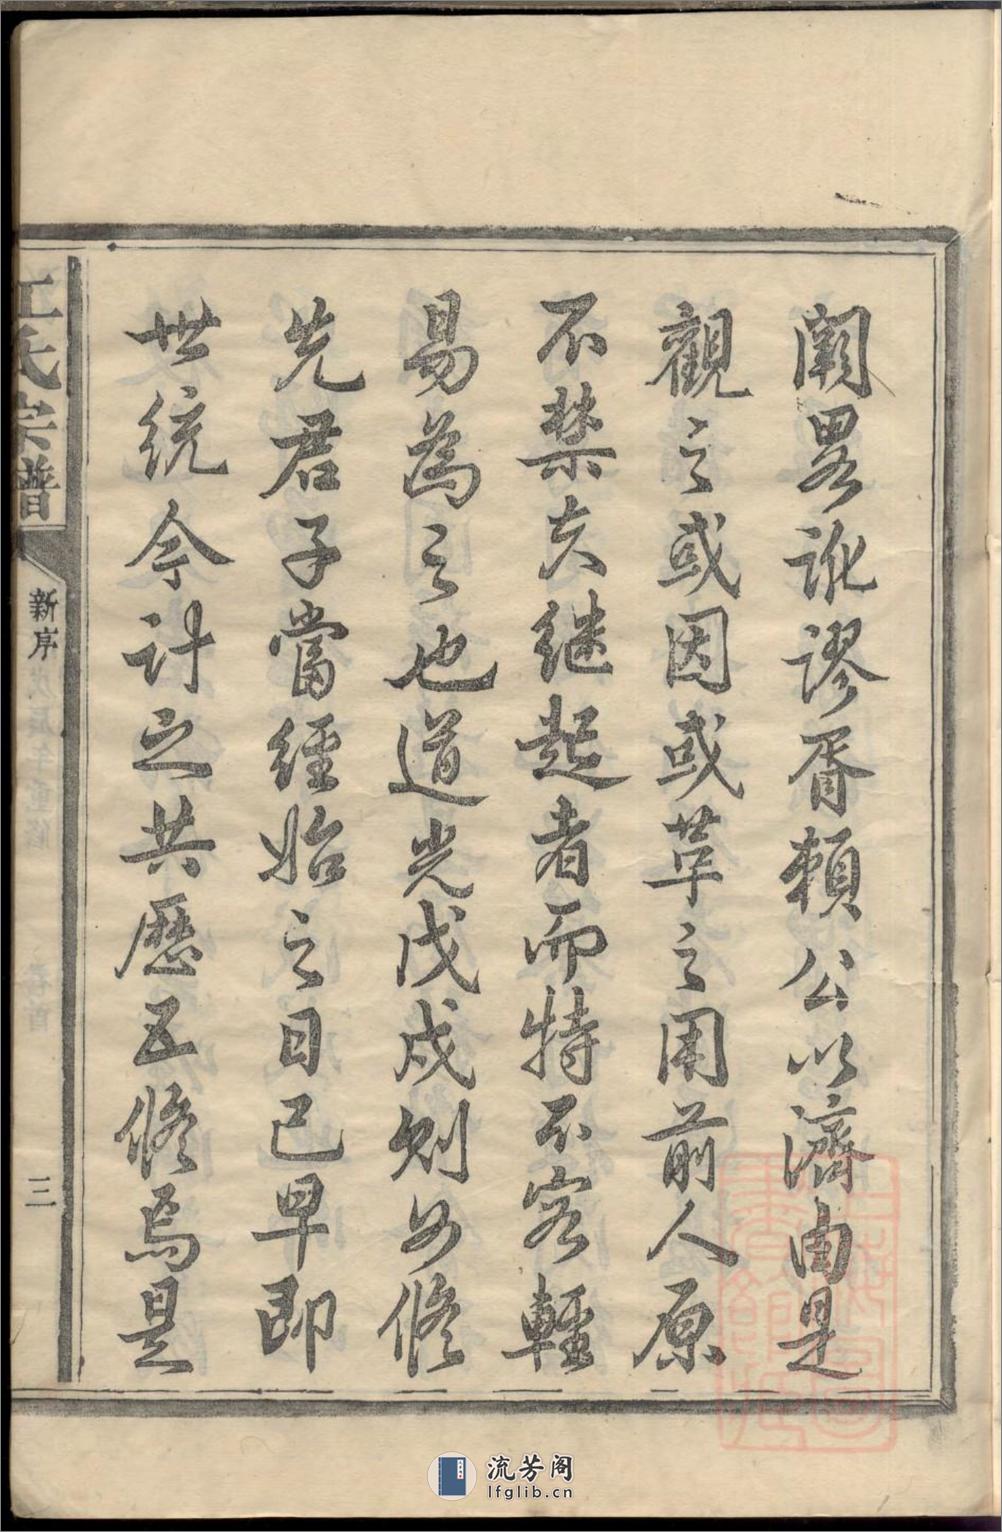 闕畧訛謬胥賴公以濟由是
觀之或因或革之用前人原
不禁夫继起者而特不容輕
易為之也道光戊戌則公修
先君子當經始之日已早即
世統今計之共歷五修焉是
江氏宗譜
新序
三
流芳阁
lfglib.cn